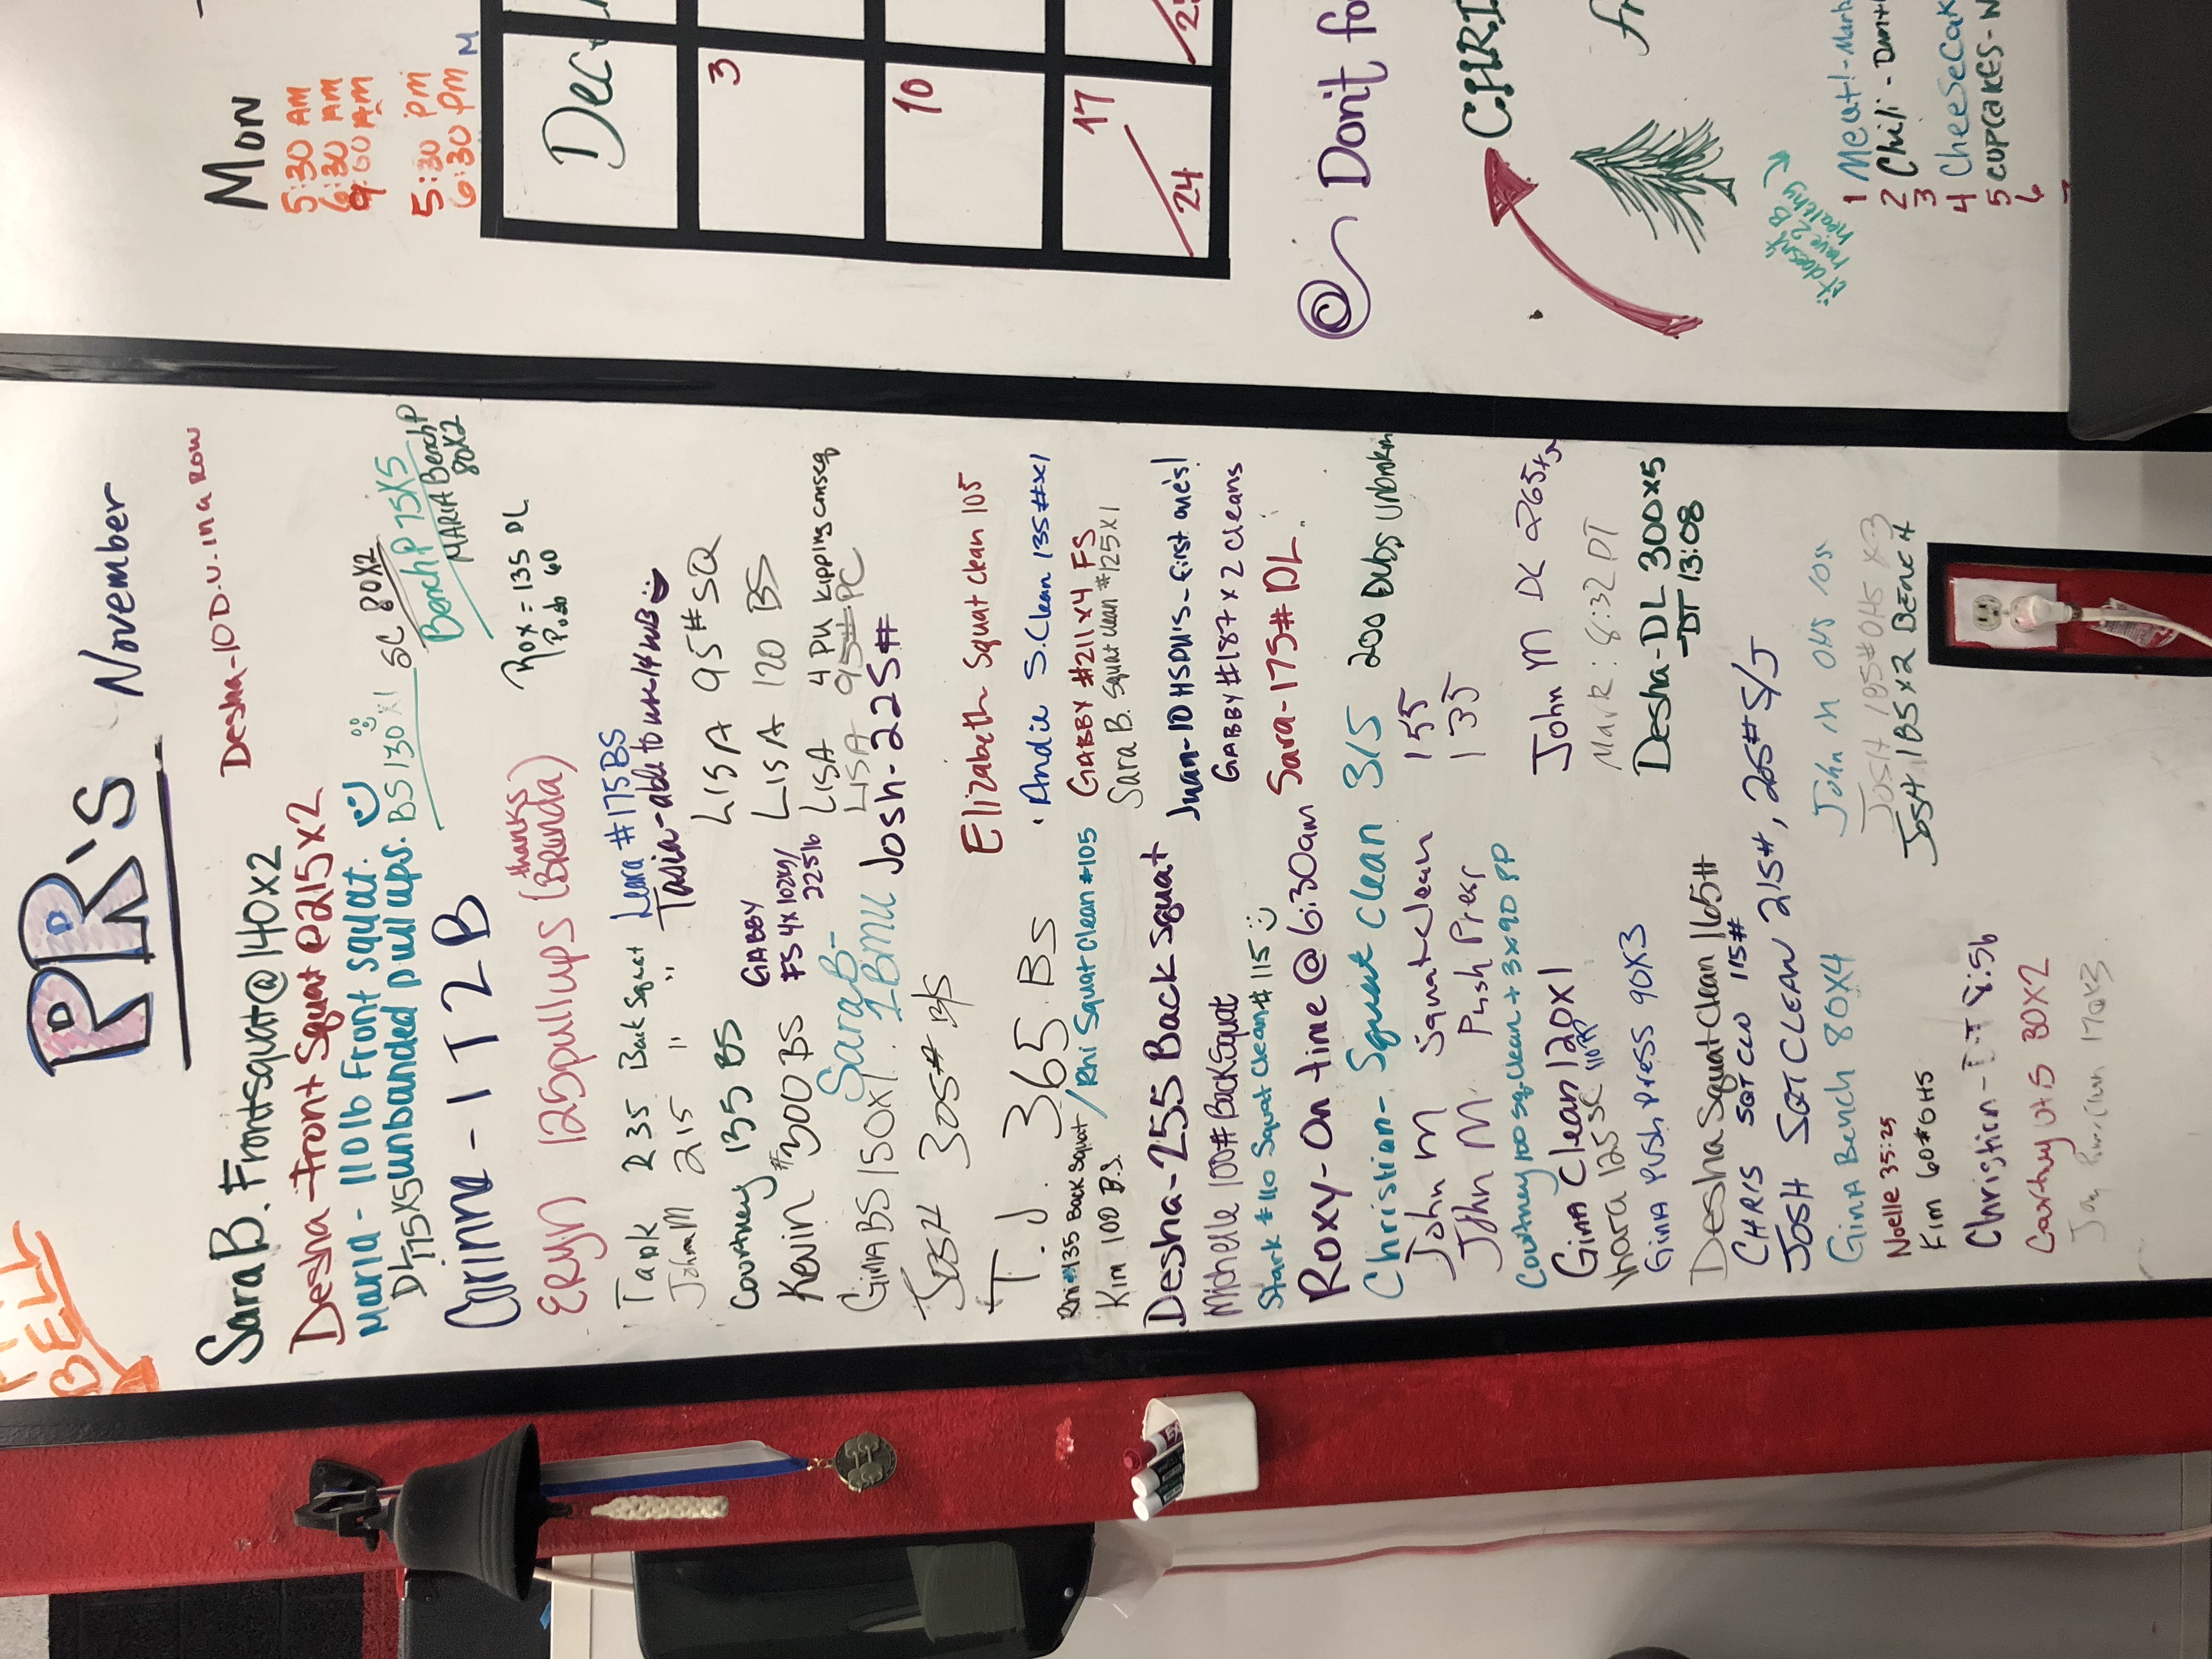 BELL
PR's November
Sara B. Front squat @ 140x2
Desha-10 D.U. in a ROW
Desha-Front Squat @ 215x2
Maria - 110 lb Front squat.
BS 130x1 SC 80x2
DL 175x5 unbanded pull ups.
Bench P 75x5
MARIA Bench P
80x2
Corinne - 1 T2B
Rox = 135 DL
ERyn 125 pullups (thanks Brenda)
Tank 235 Back Squat
Leara #175 BS
John M 215 " "
Tasia-able to use 14 WB
LISA 95# SQ
Courtney 135 BS
GABBY
FS 4x102kg/
225lb
LISA 120 BS
Kevin #300 BS
LISA 4 PU Kipping conseq
Gina BS 150x1
Sara B-
1 BMU
LISA 95# PC
Josh-225#
JOSH 305# B/S
T.J. 365. BS
Elizabeth Squat clean 105
Rhi #135 Back Squat / Rhi Squat clean #105
Andie S. Clean 135#x1
Kim 100 B.S.
GABBY #211 x4 FS
Sara B. Squat clean #125x1
Desha-255 Back Squat
Juan-10 HSPU's-first one's!
Michelle 100# Back Squat
GABBY #187 x 2 cleans
Stark #110 Squat clean #115
Sara-175# DL.
Roxy-On time @ 6:30am
Christian- Squat Clean 315
200 Dubs Unbroken
John M Squat clean 155
John M. Push Press 135
Courtney 100 sq. clean + 3x90 PP
GinA Clean 120x1
John M DL 265
125 SC 110 PP
Mark: 8:32 DT
GinA Push Press 90x3
Desha-DL 300x5
-DT 13:08
Desha Squat Clean 165#
CHRIS SQT CLN 115#
JOSH SQT CLEAN 215#, 205# S/J
GinA Bench 80x4
John M OHS
Noelle 35:25
JOSH 195# OHS x3
Kim 60# OHS
JOSH 185x2 BENCH
Christian-DT 8:56
80x2
170x3
Mon
5:30 AM
6:30 AM
9:00 AM
5:30 pm
6:30 pm
M
Dec
3
10
17
24
@ Don't
it doesn't
have 2 B
healthy
1 Meat!-
2 Chili -
3
4
5 cupcakes-
6